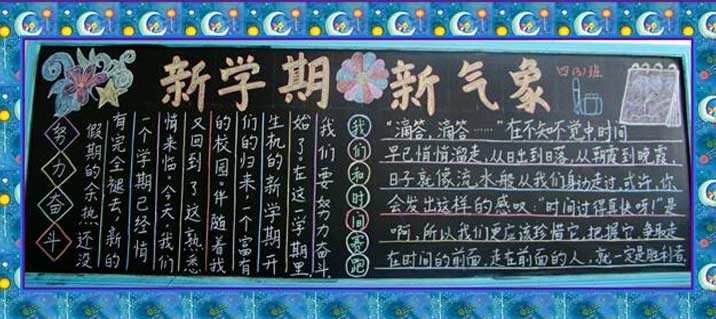 新学期 新气象
四(3)班
努力奋斗
假期的余热还没
有完全褪去，新的
一个学期已经悄
悄来临，今天，我们
又回到了这熟悉
的校园。伴随着我
们的归来，一个富有
生机的新学期开
始了。在这一学期里
我们要努力奋斗。
我们和时间赛跑
“滴答，滴答……”在不知不觉中时间
早已悄悄溜走，从日出到日落，从朝霞到晚霞，
日子就像流水般从我们身边走过，或许，你
会发出这样的感叹：“时间过得真快呀！”是
啊，所以我们更应该珍惜它，把握它，争取走
在时间的前面，走在前面的人，就一定是胜利者。